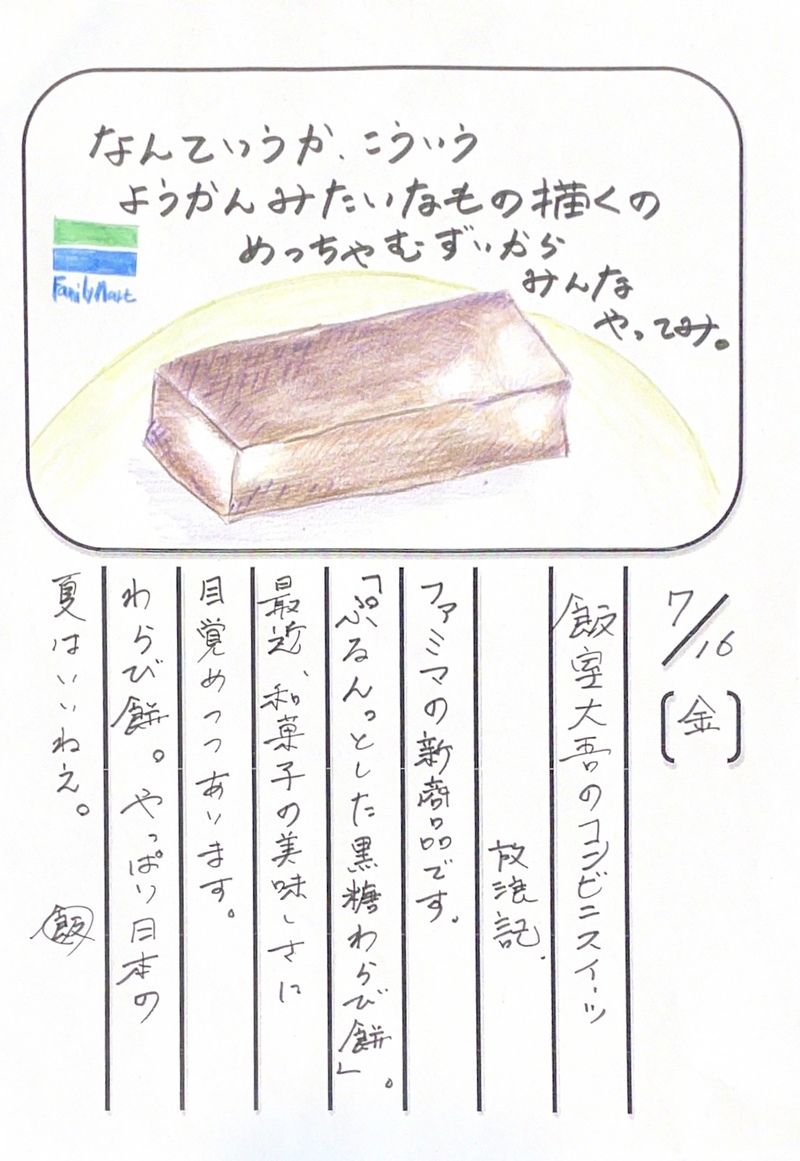 なんていうか、こういう
ようかんみたいなもの描くの
めっちゃむずいから
みんな
やってみ。
FamilyMart
7/16
(金)
飯室大吾のコンビニスイーツ
放浪記.
ファミマの新商品です.
「ぷるんっとした黒糖わらび餅」。
最近、和菓子の美味しさに
目覚めつつあります。
わらび餅。やっぱり日本の
夏はいいねえ。
飯